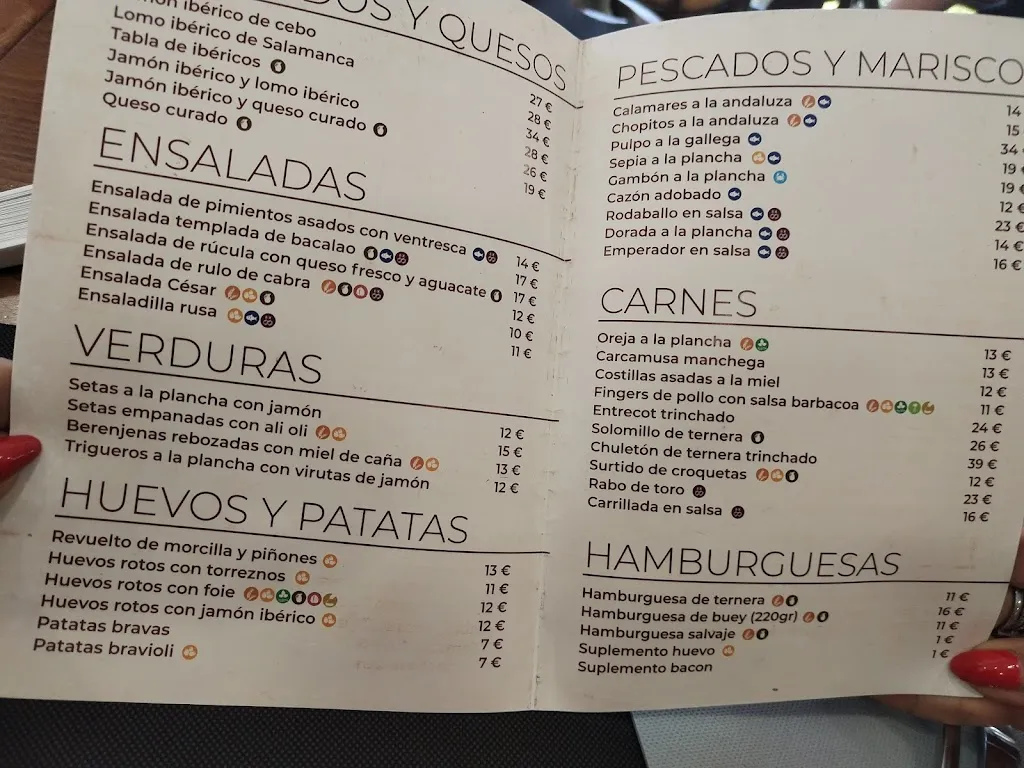 DOS Y QUESOS
ón ibérico de cebo 27 €
Lomo ibérico de Salamanca 28 €
Tabla de ibéricos 34 €
Jamón ibérico y lomo ibérico 28 €
Jamón ibérico y queso curado 26 €
Queso curado 19 €
ENSALADAS
Ensalada de pimientos asados con ventresca 14 €
Ensalada templada de bacalao 17 €
Ensalada de rúcula con queso fresco y aguacate 17 €
Ensalada de rulo de cabra 12 €
Ensalada César 10 €
Ensaladilla rusa 11 €
VERDURAS
Setas a la plancha con jamón 12 €
Setas empanadas con ali oli 15 €
Berenjenas rebozadas con miel de caña 13 €
Trigueros a la plancha con virutas de jamón 12 €
HUEVOS Y PATATAS
Revuelto de morcilla y piñones 13 €
Huevos rotos con torreznos 11 €
Huevos rotos con foie 12 €
Huevos rotos con jamón ibérico 12 €
Patatas bravas 7 €
Patatas bravioli 7 €
PESCADOS Y MARISCO
Calamares a la andaluza 14
Chopitos a la andaluza 15
Pulpo a la gallega 34
Sepia a la plancha 19
Gambón a la plancha 19 €
Cazón adobado 12 €
Rodaballo en salsa 23 €
Dorada a la plancha 14 €
Emperador en salsa 16 €
CARNES
Oreja a la plancha 13 €
Carcamusa manchega 13 €
Costillas asadas a la miel 12 €
Fingers de pollo con salsa barbacoa 11 €
Entrecot trinchado 24 €
Solomillo de ternera 26 €
Chuletón de ternera trinchado 39 €
Surtido de croquetas 12 €
Rabo de toro 23 €
Carrillada en salsa 16 €
HAMBURGUESAS
Hamburguesa de ternera 11 €
Hamburguesa de buey (220gr) 16 €
Hamburguesa salvaje 11 €
Suplemento huevo 1 €
Suplemento bacon 1 €